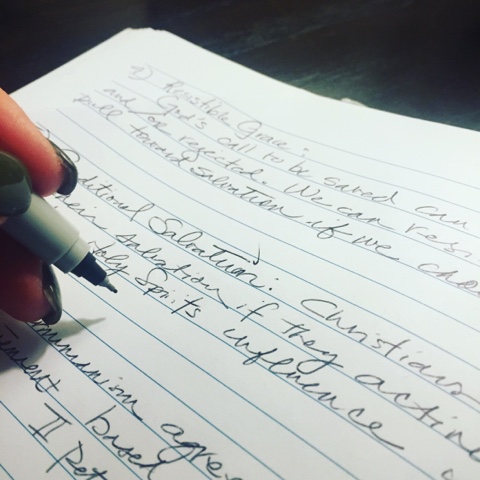 4) Resistible Grace:
God's call to be saved can
and/or rejected. We can resi
pull toward salvation if we choo
ditional Salvation: Christians
their salvation if they active
Holy Spirits influence
agre
based
II Pet